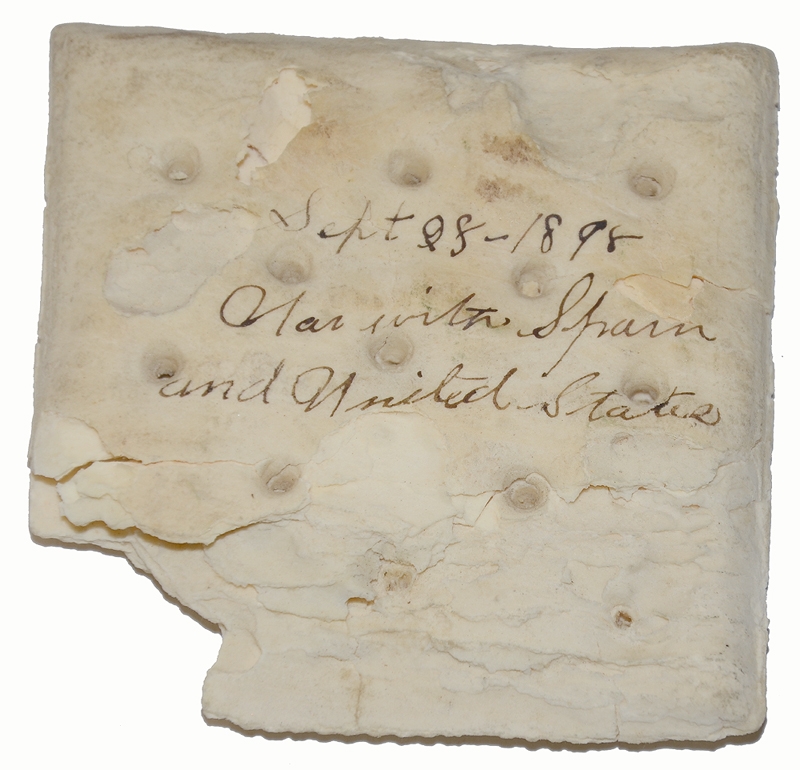 Sept 28-1898
War with Spain
and United States